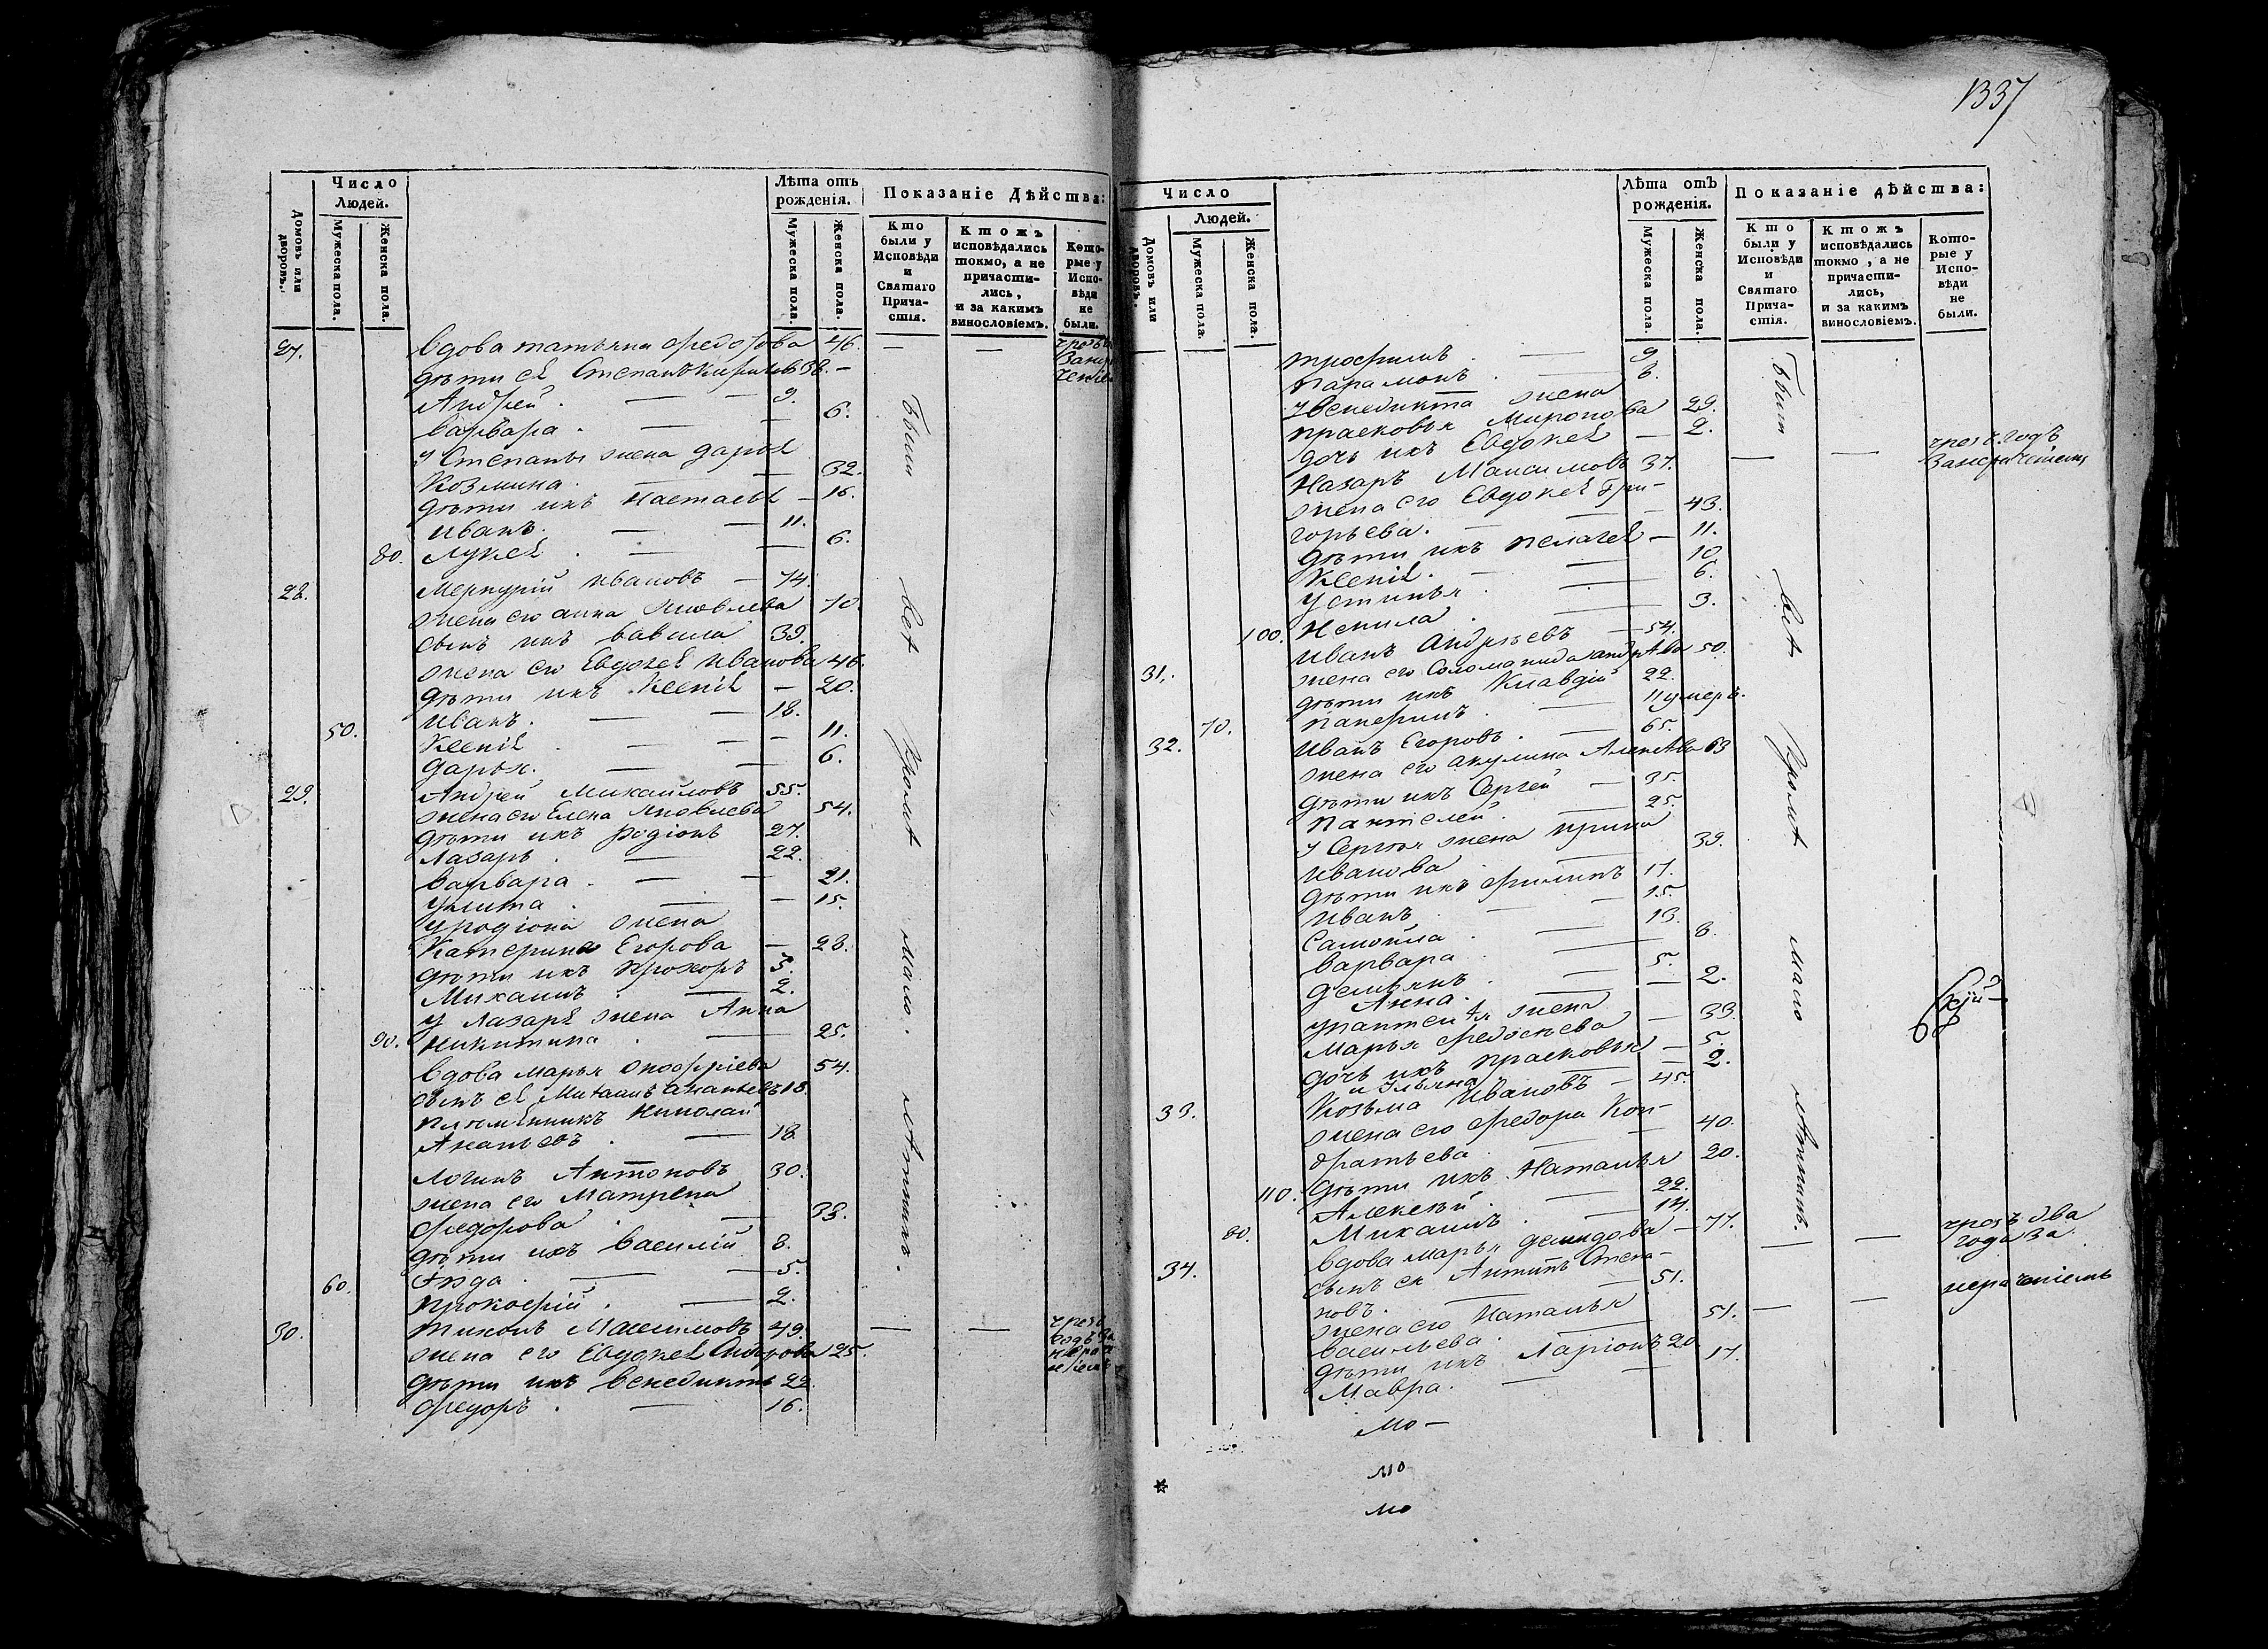 Число
Людей.
Домовъ или дворовъ.
Мужеска пола.
Женска пола.
Лѣта отъ рожденія.
Мужеска пола.
Женска пола.
Показаніе Дѣйства:
Кто были у Исповѣди и Святаго Причастія.
Ктожъ исповѣдались токмо, а не причастились, и за какимъ винословіемъ.
Которые у Исповѣди не были.
27. Вдова татьяна Федорова 46. — —
дѣти ея Степанъ 38. —
Андрей. — — 9.
варвара. — — 6.
у Степана жена дарья
Козмина. — — 32.
дѣти ихъ настасья — 16.
иванъ. — — 11.
80. Лукея. — — 6.
28. Меркурій ивановъ — 74.
жена его анна яковлева 70.
сынъ ихъ вавила 39.
жена его Евдокея иванова 46.
дѣти ихъ Ксенія — 20.
50. иванъ. — — 18.
Ксенія. — — 11.
дарья. — — 6.
29. Андрей Михайловъ 55.
жена его Елена яковлева 54.
дѣти ихъ родіонъ 27.
лазарь. — 22.
варвара. — — 21.
улита. — — 15.
у родіона жена
Катерина Егорова — 28.
дѣти ихъ прохоръ 3.
Михаилъ. — 2.
у лазаря жена Анна
90. никитина. — 25.
вдова марья онофріева 54.
сынъ ея Михаилъ ананьевъ 18.
племянникъ николай
Ананьевъ. — 18.
логинъ Антоновъ 30.
жена его Матрена
федорова. — 33.
дѣти ихъ василій 8.
60. — 5.
прокофій. — 2.
30. тихонъ Максимовъ 49. — — чрезъ годъ за нераченіемъ
жена его Евдокея 25.
дѣти ихъ венедиктъ 22.
федоръ. — 16.
Были всѣ кромѣ мало-лѣтнихъ.
1337
Число
Людей.
Домовъ или дворовъ.
Мужеска пола.
Женска пола.
Лѣта отъ рожденія.
Мужеска пола.
Женска пола.
Показаніе дѣйства:
Кто были у Исповѣди и Святаго Причастія.
Ктожъ исповѣдались токмо, а не причастились, и за какимъ винословіемъ.
Которые у Исповѣди не были.
трофимъ. — 9.
парамонъ. — 8.
у Венедикта жена
прасковья Миронова 29.
дочь ихъ Евдокея — 2.
Назаръ Максимовъ 37. — — чрезъ годъ за нераченіемъ
жена его Евдокея Гри-
горьева. — — 43.
дѣти ихъ пелагея — 11.
Ксенія. — — 10.
устинья. — 6.
100. Ненила. — 3.
31. иванъ андреевъ — 54.
жена его Соломанида андрѣева 50.
дѣти ихъ Клавдій 22.
70. панфилъ. — 11 умеръ.
32. иванъ Егоровъ. — 65.
жена его акулина Алексѣева 63
дѣти ихъ Сергей — 35.
пантелей. — 25.
у Сергѣя жена ирина
иванова — 39.
дѣти ихъ филипъ 17.
иванъ. — 15.
Самойла. — 13.
варвара. — 8.
демьянъ. — 5.
Анна. — 2.
у пантелѣя жена
Марья федосеева — 33.
дочь ихъ прасковья — 5.
и ульяна — 2.
33. Козьма ивановъ — 45.
жена его федора Кон-
дратьева. — 40.
110. дѣти ихъ наталья 20.
Алексѣй. — 22.
80. Михаилъ. — 14.
34. вдова марья демидова — 77. — — чрезъ два года за нераченіемъ
сынъ ея Антипъ Степа-
новъ. — 51.
жена его наталья
васильева. — 51. — —
дѣти ихъ ларіонъ 20
Мавра. — 17.
Были всѣ кромѣ мало лѣтнихъ.
мо —
мо
мо
*